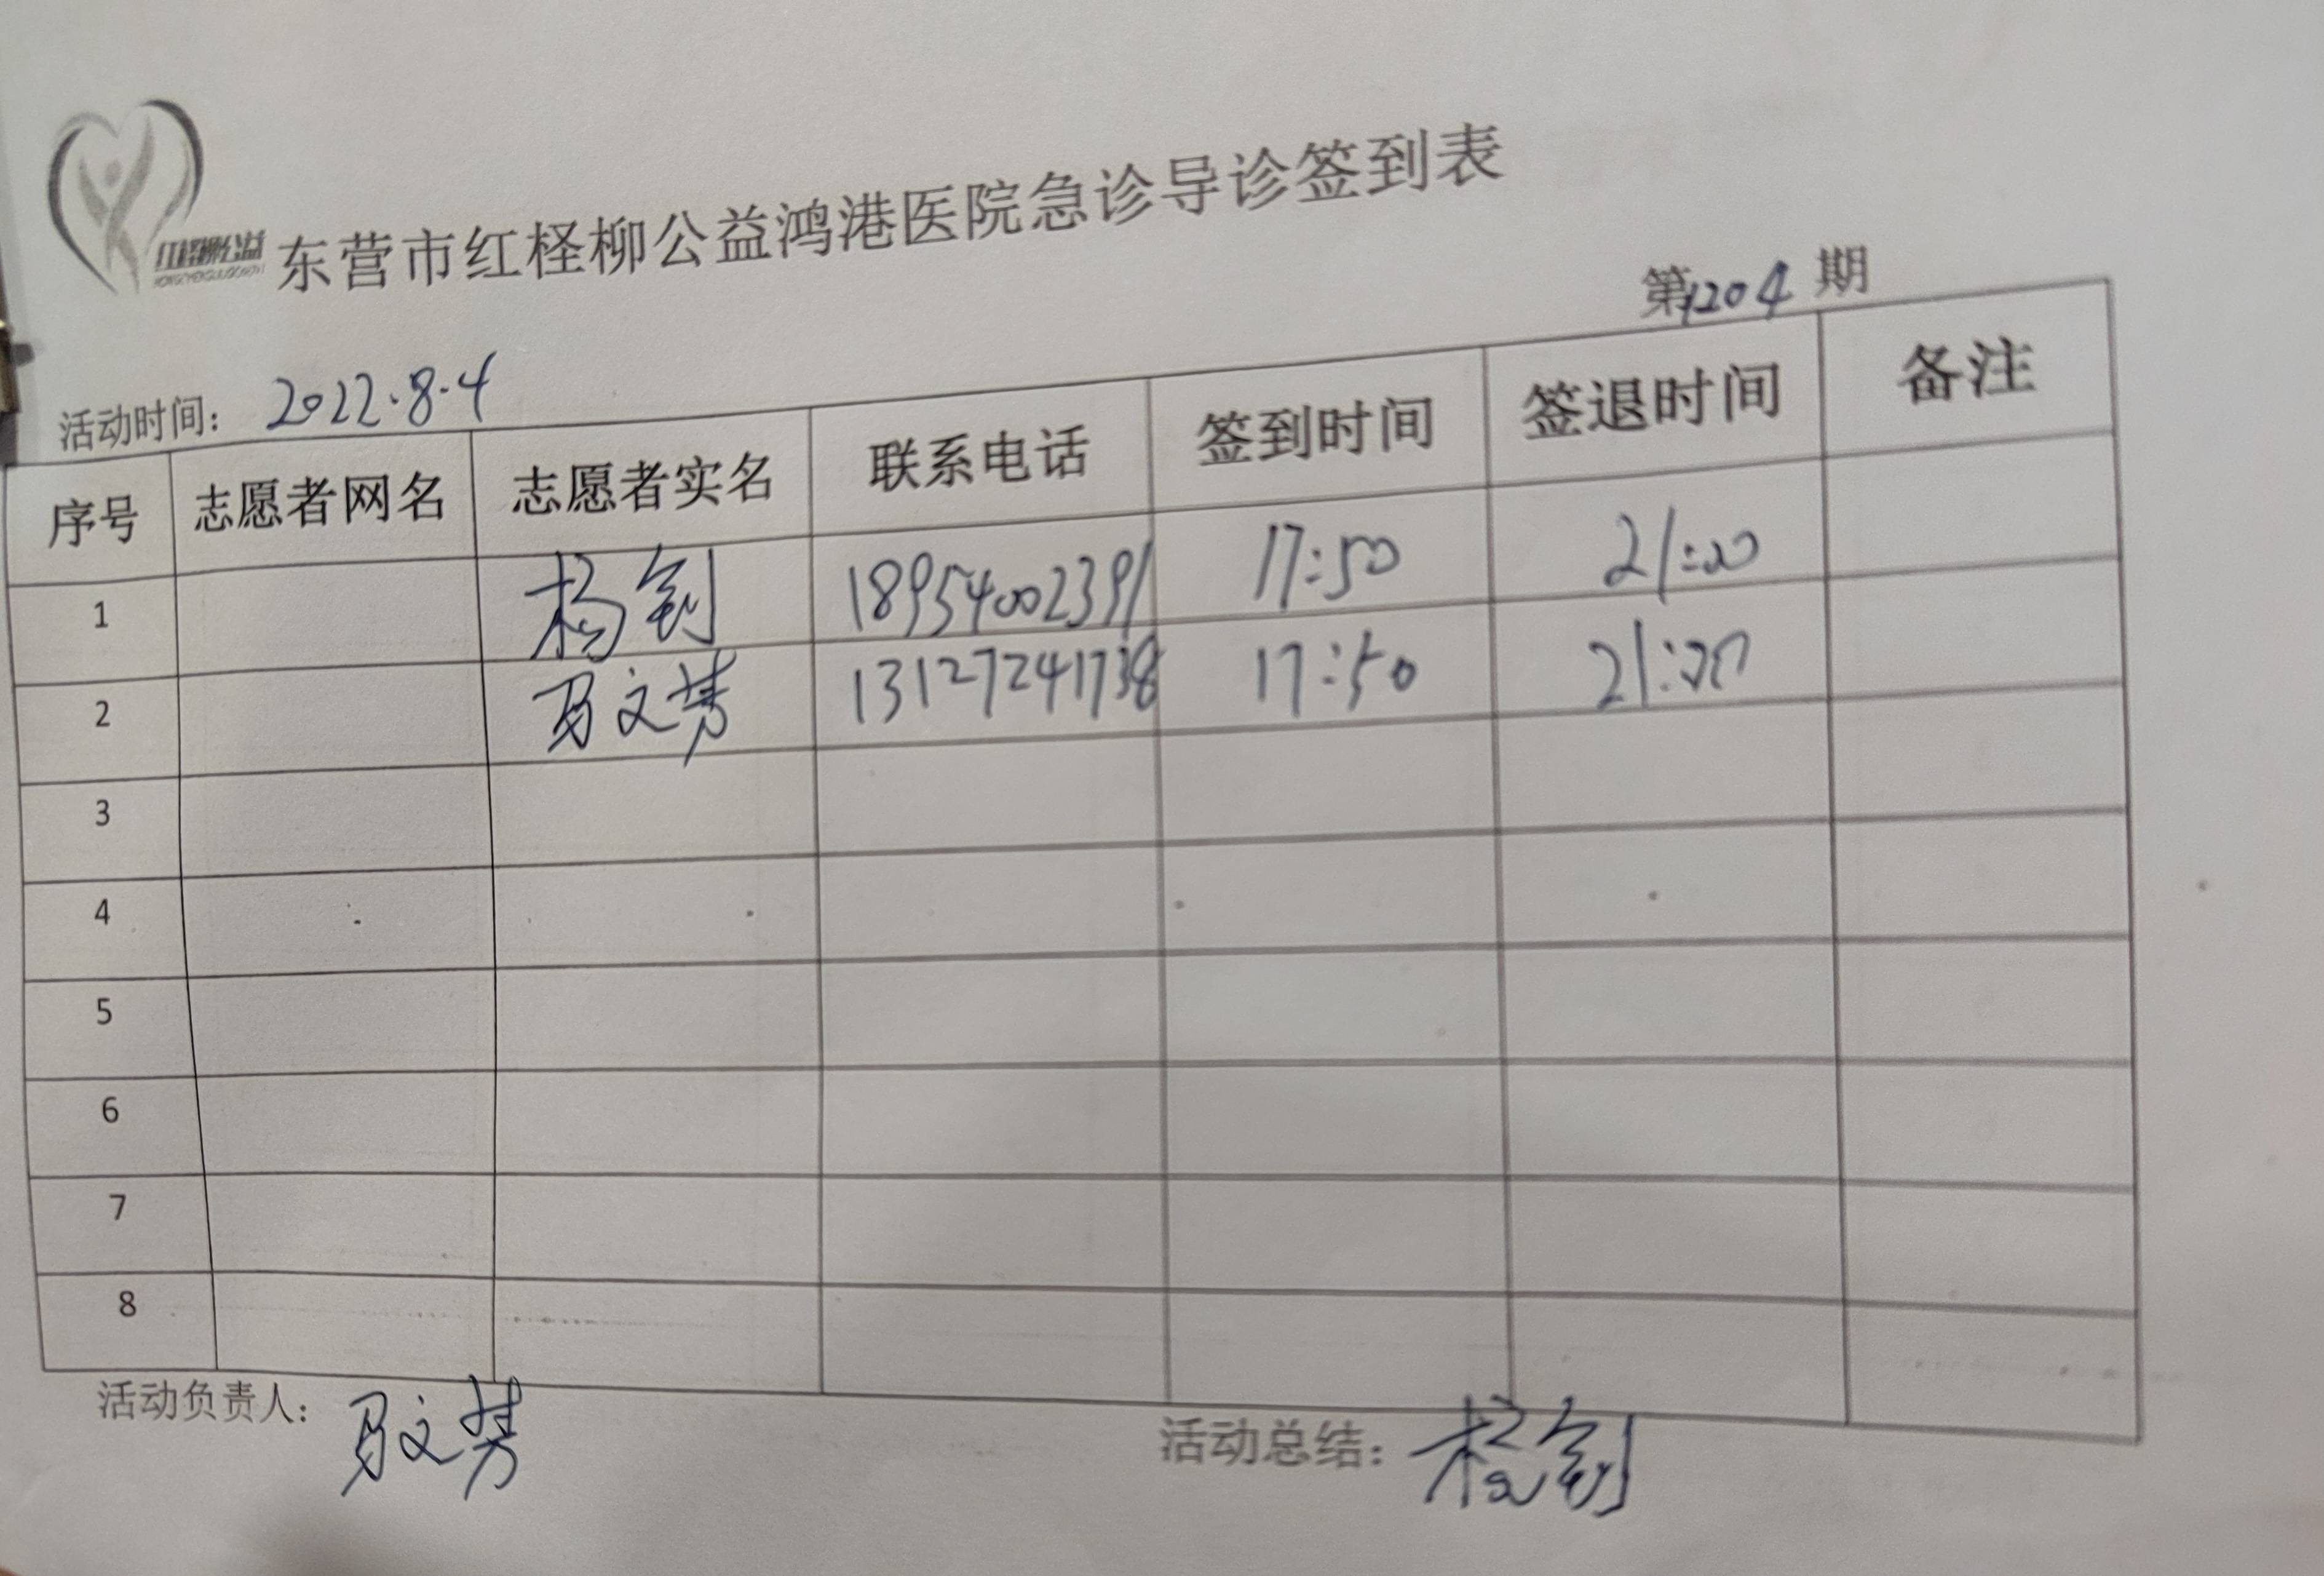 红柽柳公益
东营市红柽柳公益鸿港医院急诊导诊签到表
第1204期
活动时间: 2022.8.4
序号 志愿者网名 志愿者实名 联系电话 签到时间 签退时间 备注
1 杨钊 18954002391 17:50 21:20
2 文 13127241738 17:50 21:20
3
4
5
6
7
8
活动负责人: 文
活动总结: 杨钊